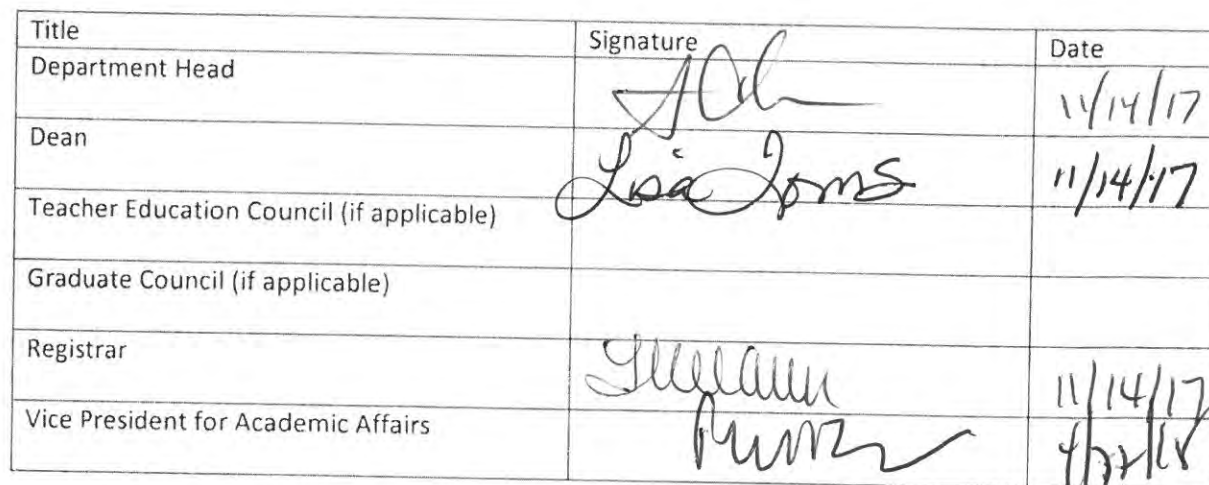 Title Signature Date
Department Head 11/14/17
Dean Lisa Toms 11/14/17
Teacher Education Council (if applicable)
Graduate Council (if applicable)
Registrar 11/14/17
Vice President for Academic Affairs